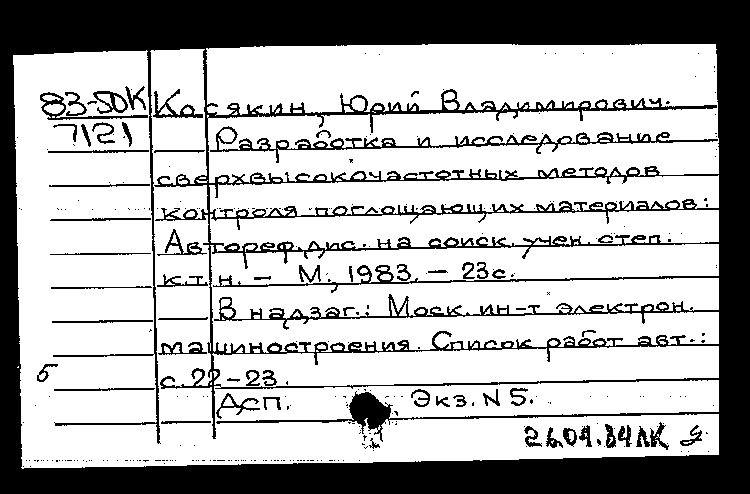 83-5ДК Косякин, Юрий Владимирович.
7121 Разработка и исследование
сверхвысокочастотных методов
контроля поглощающих материалов:
Автореф. дис. на соиск. учен. степ.
к.т.н. - М., 1983. - 23с.
В надзаг.: Моск. ин-т электрон.
машиностроения. Список работ авт.:
5 с. 22-23.
ДСП. Экз. N 5.
26.04.84